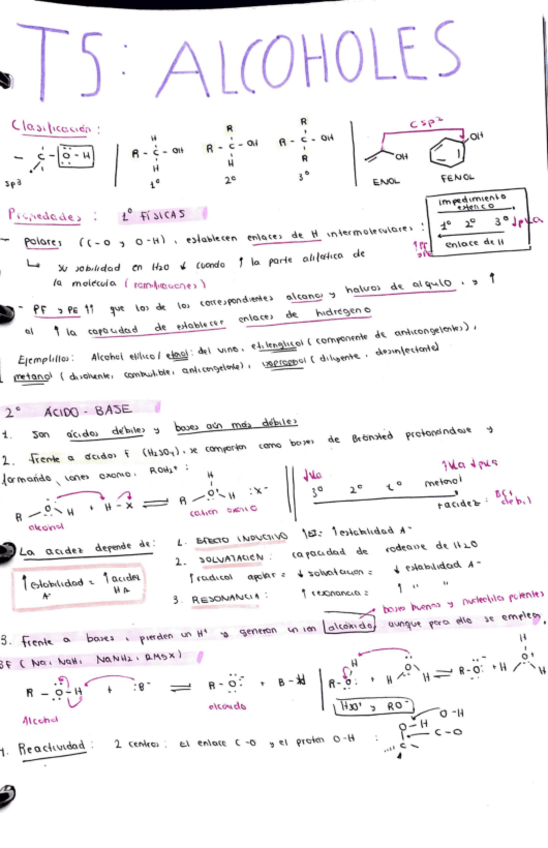 T5: ALCOHOLES
Clasificación:
Csp²
- C - O - H
sp³
H
R - C - OH
H
1º
R
R - C - OH
H
2º
R
R - C - OH
R
3º
OH
ENOL
OH
FENOL
Propiedades: 1º FÍSICAS
impedimiento estérico
1º 2º 3º
enlace de H
↓pKa
- polares (C-O y O-H), establecen enlaces de H intermoleculares:
↳ su solubilidad en H2O ↓ cuando ↑ la parte alifática de
la molécula (ramificaciones)
- PF y PE ↑↑ que los de los correspondientes alcanos y haluros de alquilo, y ↑
al ↑ la capacidad de establecer enlaces de hidrógeno
Ejemplillos: Alcohol etílico / etanol: del vino, etilenglicol (componente de anticongelantes),
metanol (disolvente, combustible, anticongelante), isopropanol (diluyente, desinfectante)
2º ÁCIDO-BASE
1. Son ácidos débiles y bases aún más débiles
2. Frente a ácidos f (H2SO4), se comportan como bases de Bronsted protonándose y
formando iones oxonio. ROH2+:
R - O - H + H-X ⇌ R - O - H :X⁻
H
alcohol
catión oxonio
↓Ka
↑Ka ↓pKa
3º 2º 1º metanol
+ acidez:
La acidez depende de:
↑ estabilidad A⁻ = ↑ acidez HA
1. EFECTO INDUCTIVO ↑EI: ↑estabilidad A⁻
2. SOLVATACIÓN: capacidad de rodearse de H2O
↑ radical apolar = ↓ solvatación = ↓ estabilidad A⁻
3. RESONANCIA: ↑ resonancia = ↑ " "
bases buenas y nucleófilos potentes
3. Frente a bases, pierden un H⁺ y generan un ion alcóxido, aunque para ello se emplean
BF (Na, NaH, NaNH2, RMgX)
R - O - H + :B⁻ ⇌ R - O:⁻ + B - H
Alcohol
alcóxido
R - O: + H O H ⇌ R - O:⁻ + H O H
H3O⁺ y RO⁻
4. Reactividad: 2 centros: el enlace C-O y el protón O-H:
O-H
O-H
C-O
C